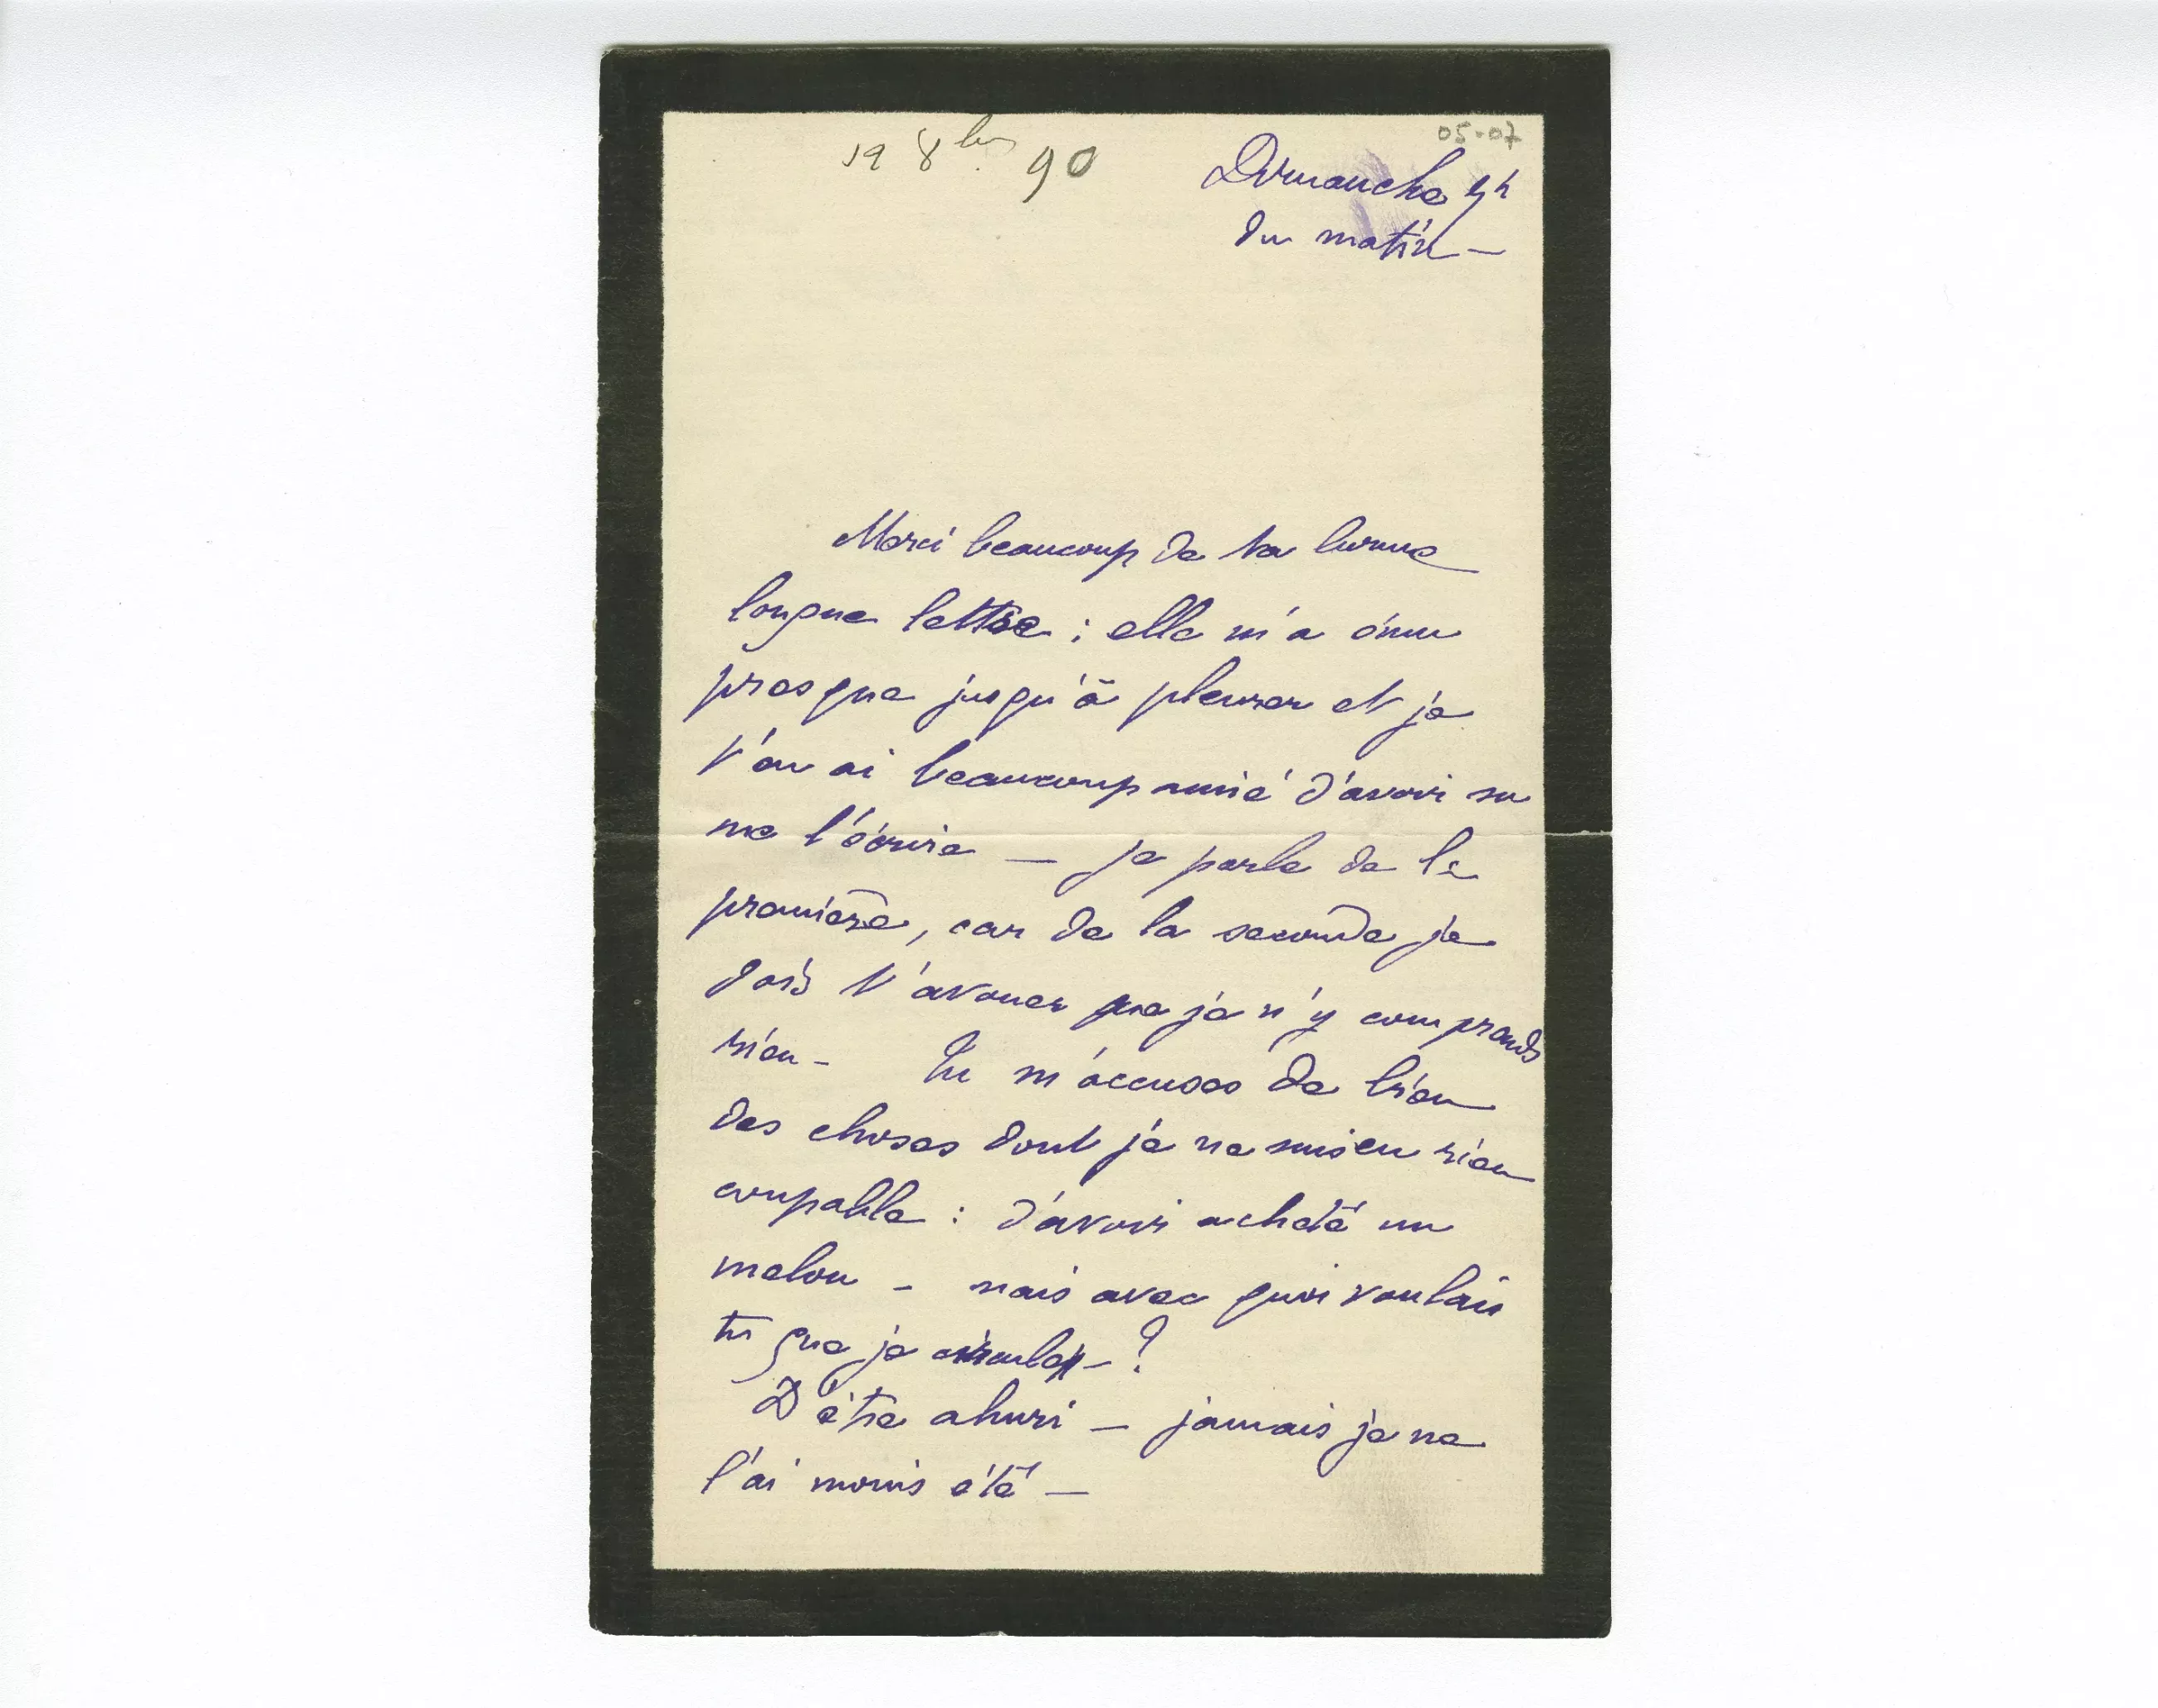 05-07
19 8bre 90
Dimanche 9h
du matin —
Merci beaucoup de ta bonne
longue lettre ; elle m'a ému
presque jusqu'à pleurer et je
t'en ai beaucoup aimé d'avoir su
me l'écrire — je parle de la
première, car de la seconde je
dois t'avouer que je n'y comprends
rien - Tu m'accuses de bien
des choses dont je ne suis en rien
coupable : d'avoir acheté un
melon - mais avec quoi voulais
tu que je - ?
D'être ahuri — jamais je ne
l'ai moins été —